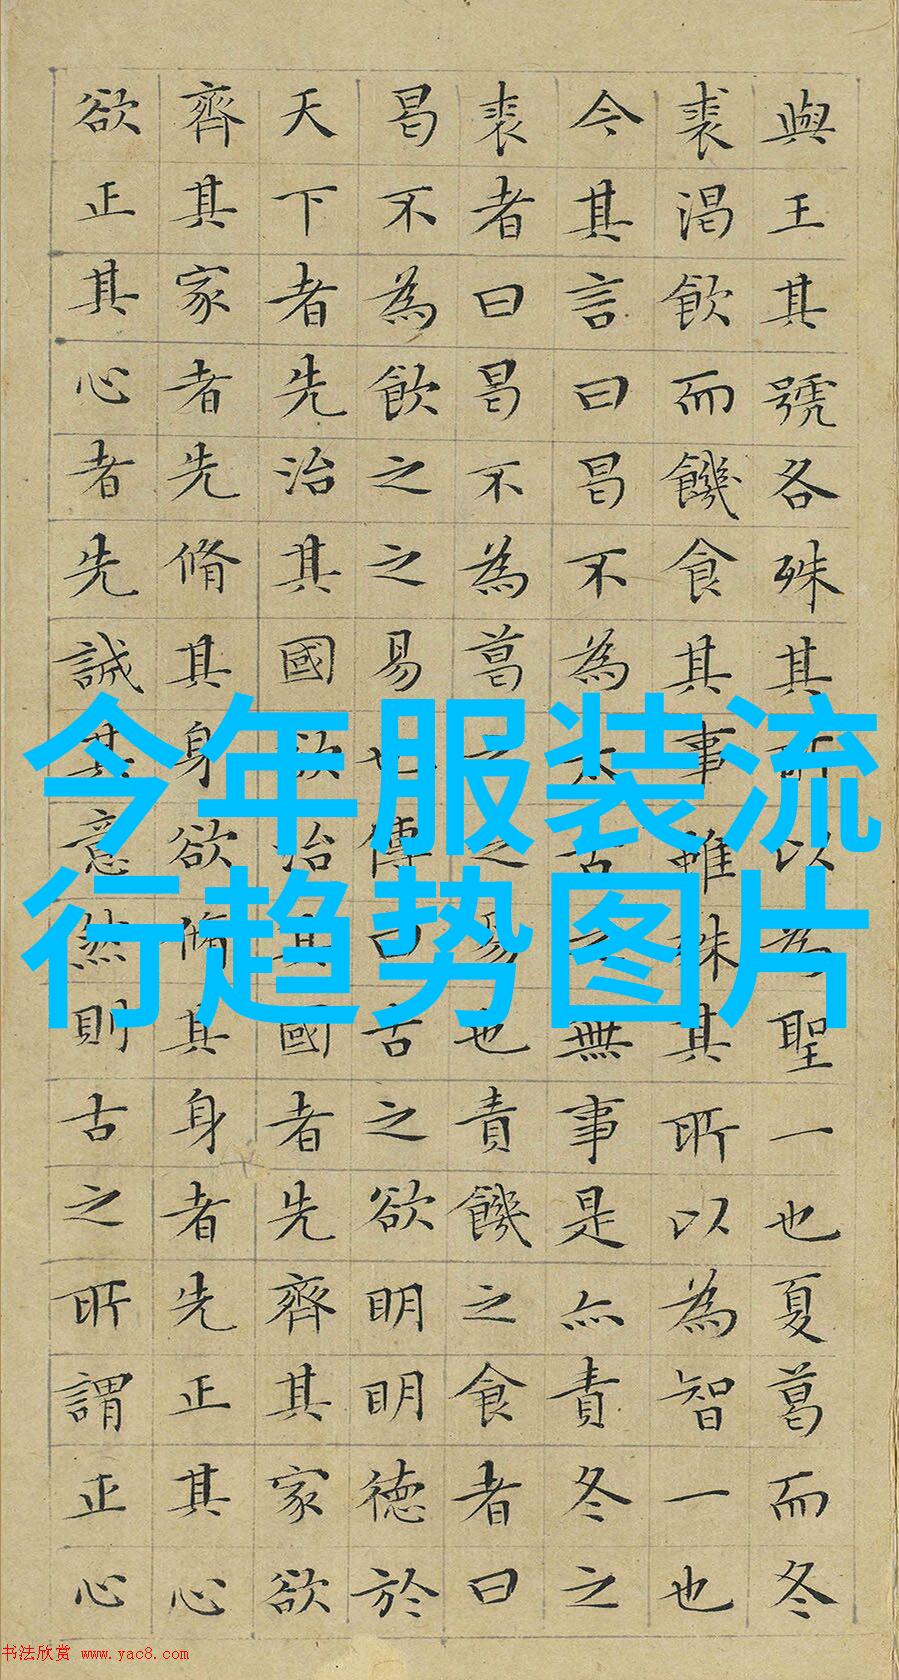 與王其號各殊其所以為聖一也夏葛而冬
裘渴飲而饑食其事雖殊其所以為智一也
今其言曰曷不為太古之無事是亦責冬之
裘者曰曷不為葛之之易也責饑之食者曰
曷不為飲之之易也傳曰古之欲明明德於
天下者先治其國欲治其國者先齊其家欲
齊其家者先脩其身欲脩其身者先正其心
欲正其心者先誠其意然則古之所謂正心
今年服装流
行趋势图片
书法欣赏 www.yac8.com